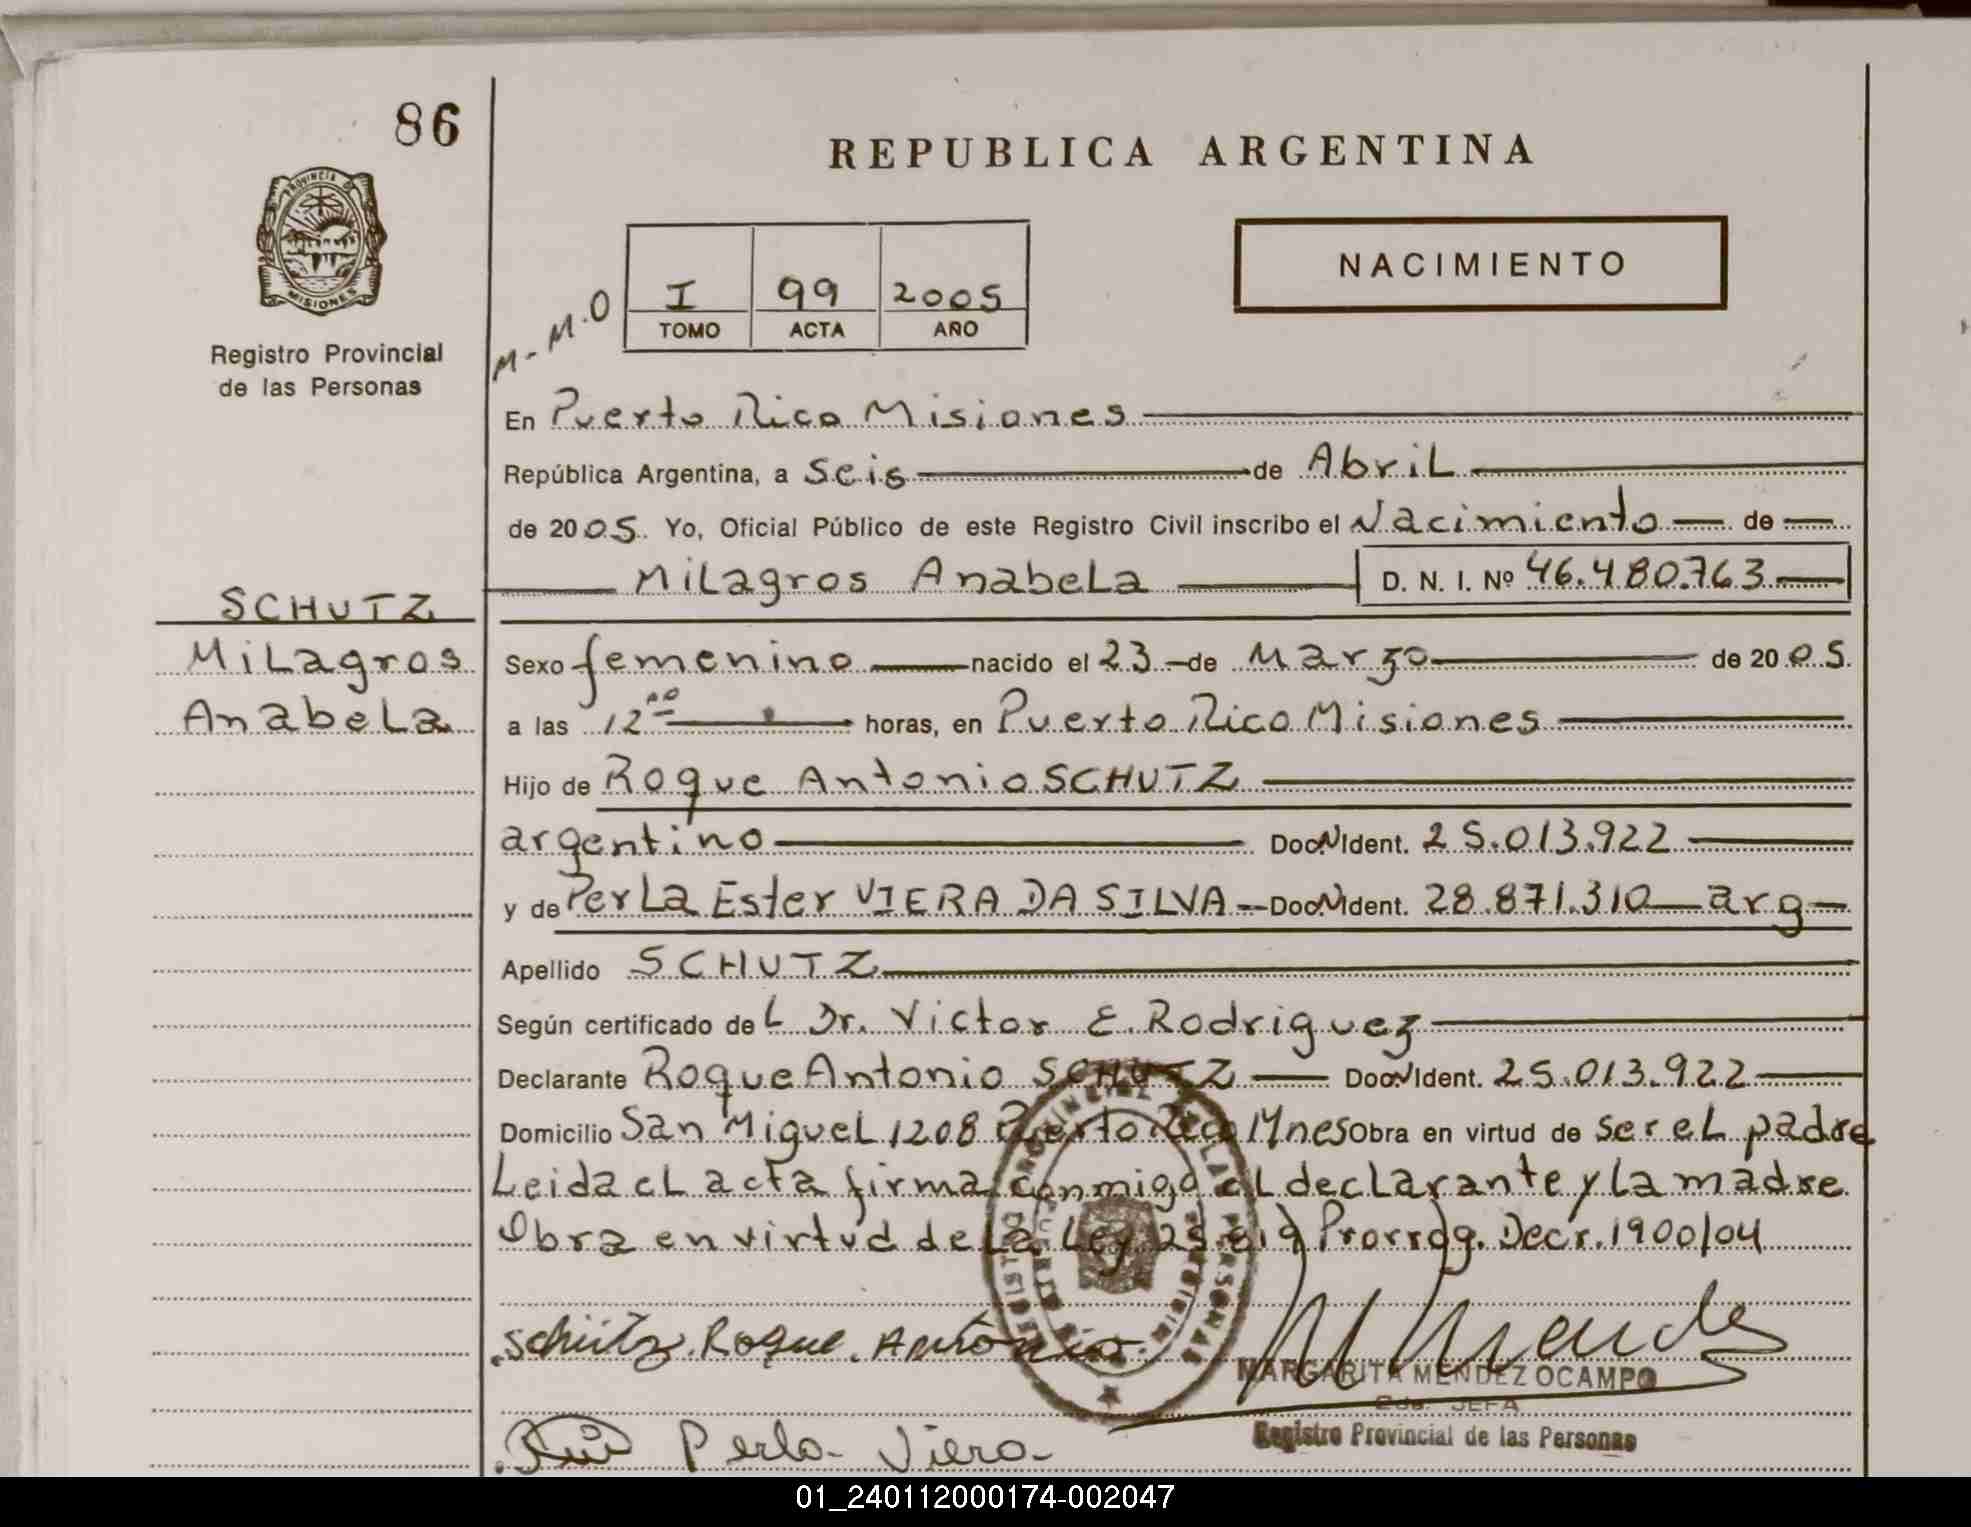 86
REPUBLICA ARGENTINA
PROVINCIA DE
MISIONES
Registro Provincial
de las Personas
M-M.O
I 99 2005
TOMO ACTA AÑO
NACIMIENTO
En Puerto Rico Misiones
República Argentina, a Seis de Abril
de 2005. Yo, Oficial Público de este Registro Civil inscribo el Nacimiento de
Milagros Anabela D. N. I. Nº 46.480.763
SCHUTZ
Milagros
Anabela
Sexo femenino nacido el 23 de Marzo de 2005.
a las 12 00 horas, en Puerto Rico Misiones
Hijo de Roque Antonio SCHUTZ
argentino Doc.N Ident. 25.013.922
y de Perla Ester VIERA DA SILVA Doc.N Ident. 28.871.310 arg
Apellido SCHUTZ
Según certificado del Dr. Victor E. Rodriguez
Declarante Roque Antonio SCHUTZ Doc.N Ident. 25.013.922
Domicilio San Miguel 1208 Puerto Rico Mnes Obra en virtud de ser el padre
Leida el acta firma conmigo el declarante y la madre
Obra en virtud de la Ley 25.819 Prorrog. Decr. 1900/04
Schütz Roque Antonio
MARGARITA MENDEZ OCAMPO
JEFA
Registro Provincial de las Personas
Perla Viera
01_240112000174-002047